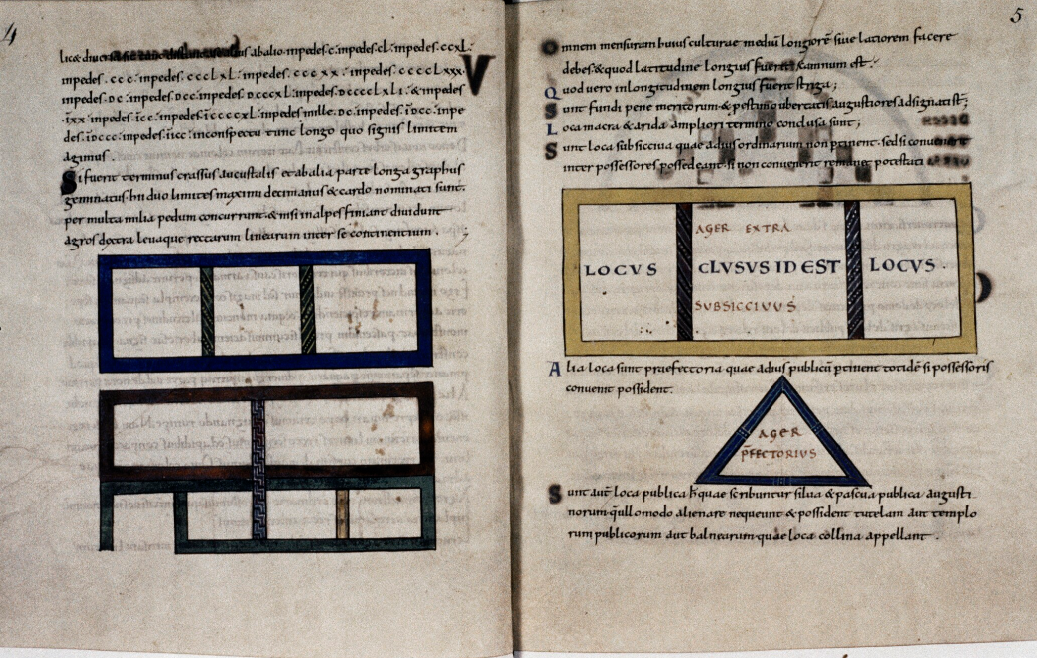 4
abalio inpedes. c. inpedes. cl. inpedes. ccxl.
inpedes. ccc. inpedes. cccLxL. inpedes. cccxx. inpedes. ccccLxxx.
inpedes. DC. inpedes. DCCCXL. inpedes. DCCCCLXLI. & inpedes
V
ĩxx inpedes. ĩcc. inpedes. ĩccccxl. inpedes mille. DC. inpedes. ĩDCC. inpe
des. ĩDCCC. inpedes. ĩĩcc. inconspectu tunc longo quo signis limitem
agimus.
Si fuerit terminus crassius aucustalis et abalia parte longa graphus
geminatus. hii duo limites maximi decimanus & cardo nominati sunt.
per multa milia pedum concurrunt. & insi inalpes finiant diuidunt
agros dextra leuaque rectarum linearum inter se continentium.
5
Omnem mensuram huius culturae mediũ longiorẽ siue latiorem facere
debes. & quod latitudine longius fuerit scamnum est.
Quod uero inlongitudinem longius fuerit striga;
Sunt fundi pene meritorum & postũno ubertatis augustiores adsignatist;
Loca macra & arida ampliori termino conclusa sunt;
Sunt loca subsiciua quae adius ordinarium non ptinent. sed si conuenerit
inter possessores possedeant. si non conuenerit remanet potestati
AGER EXTRA
LOCVS
CLVSVS ID EST
LOCVS
SUBSICCIVUS
Alia loca sunt praefectoria quae adius publicũ ptinent totidẽ si possessoris
conuenit possident.
AGER
P̄FECTORIUS
Sunt aut̃ loca publica quae scribuntur silua & pascua publica augusti
norum qullomodo alienare nequeunt & possident tutelam aut templo
rum publicorum aut balnearum quae loca collina appellant.